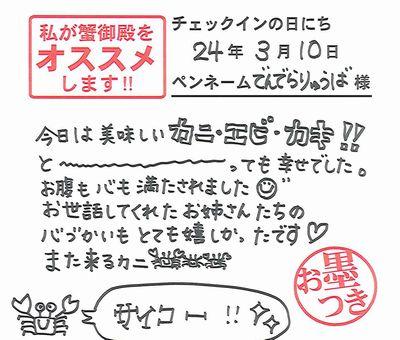 私が蟹御殿を
オススメ
します!!
チェックインの日にち
24年 3月10日
ペンネームでんでらりゅうば 様
今日は美味しいカニ・エビ・カキ!!
と〜〜〜っても幸せでした。
お腹も心も満たされました
お世話してくれたお姉さんたちの
心づかいもとても嬉しかったです♡
また来るカニ
お墨つき
サイコー!!